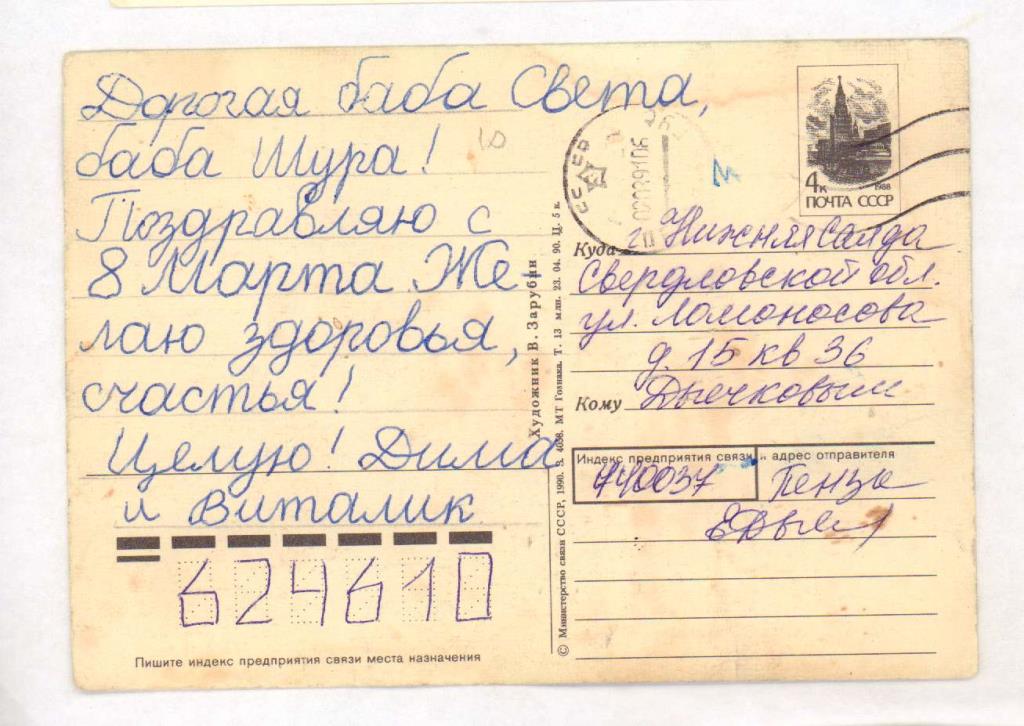 Дорогая баба Света,
баба Шура!
Поздравляю с
8 Марта Же-
лаю здоровья,
счастья!
Целую! Дима
и Виталик
624610
Пишите индекс предприятия связи места назначения
Художник В. Зарубин
© Министерство связи СССР, 1990. З. 4038. МТ Гознака. Т. 13 млн. 23. 04. 90. Ц. 5 к.
СССР
4к
1988
ПОЧТА СССР
Куда г. Нижняя Салда
Свердловской обл.
ул. Ломоносова
д. 15 кв 36
Кому
Индекс предприятия связи и адрес отправителя
440037 Пенза